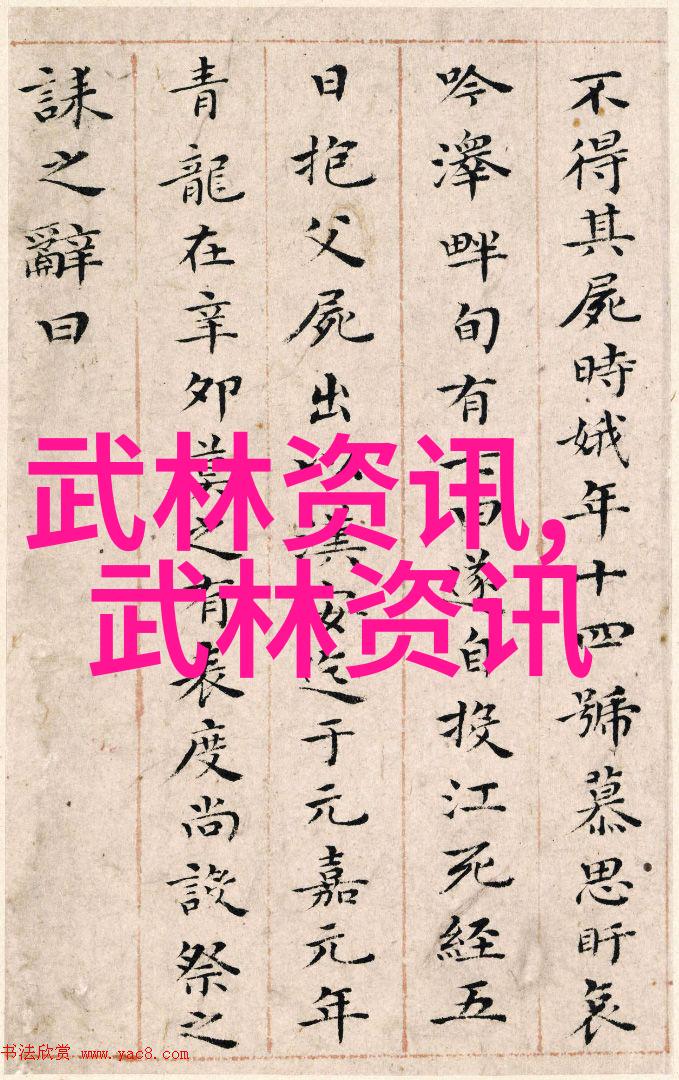 不得其屍時娥年十四號慕思盱哀
吟澤畔旬有七日遂自投江死經五
日抱父屍出以漢安迄于元嘉元年
青龍在辛卯莫之有表度尚設祭之
誄之辭曰
武林资讯,
武林资讯
书法欣赏 www.yac8.com